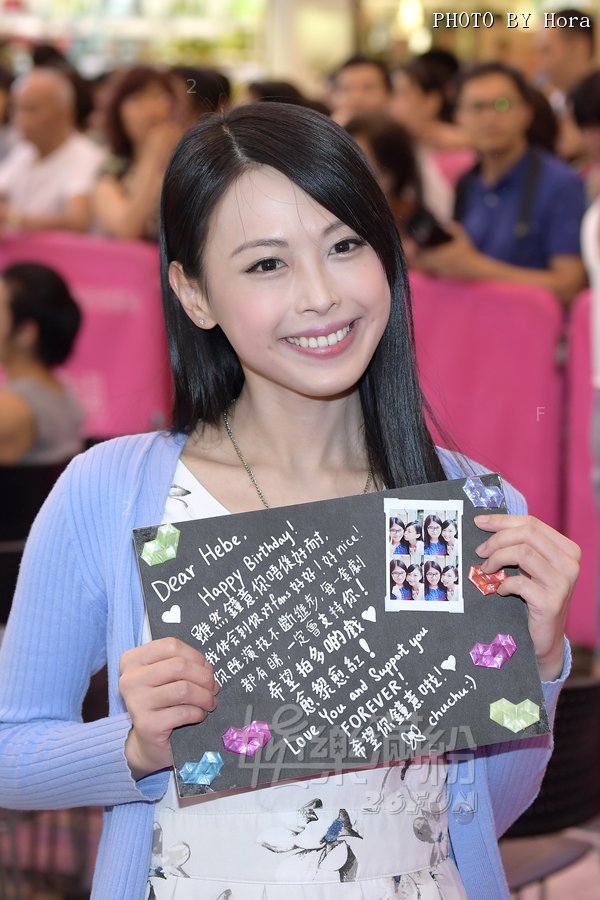 PHOTO BY Hora
Dear Hebe,
Happy Birthday!
雖然鐘意你唔係好耐,
我體會到你對fans好好!好nice!
你既演技不斷進步,每套劇
都有睇 一定會支持你!
希望拍多啲戲
愈黎愈紅!
Love You and Support you
FOREVER!
希望你鐘意啦!
chuchu:)
娛樂滿紛
26FUN